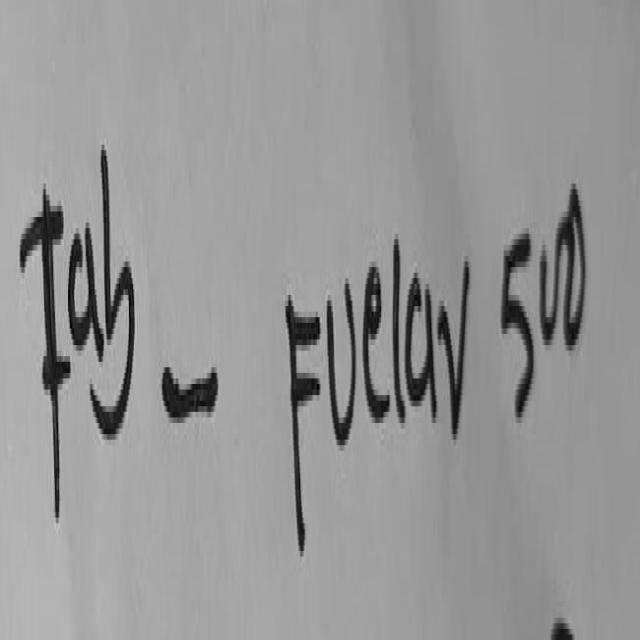 Tab - Fuelav 500